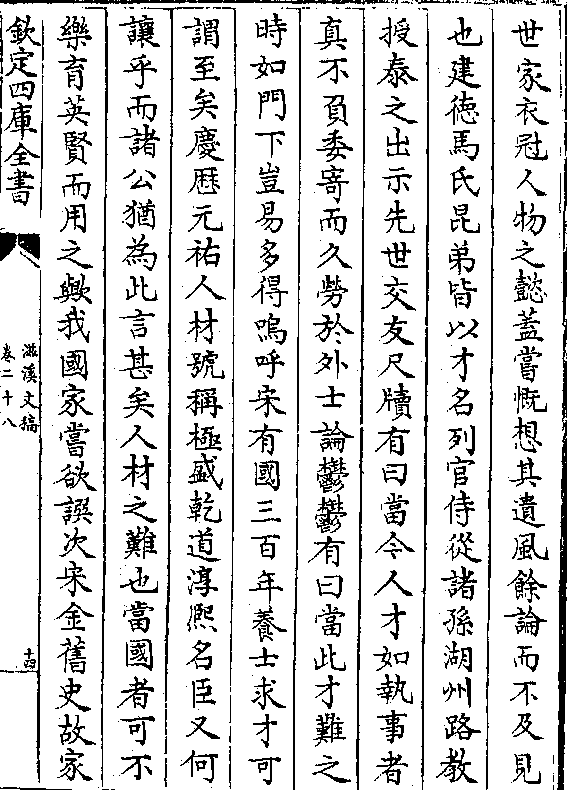 世家衣冠人物之懿蓋嘗慨想其遺風餘論而不及見
也建徳馬氏昆弟皆以才名列官侍從諸孫湖州路教
授泰之出示先世交友尺牘有曰當今人才如執事者
真不負委寄而久勞於外士論鬱鬱有曰當此才難之
時如門下豈易多得嗚呼宋有國三百年養士求才可
謂至矣慶厯元祐人材號稱極盛乾道淳熈名臣又何
讓乎而諸公猶為此言甚矣人材之難也當國者可不
樂育英賢而用之歟我國家嘗欲譔次宋金舊史故家
欽定四庫全書
滋溪文稿
卷二十八
十四